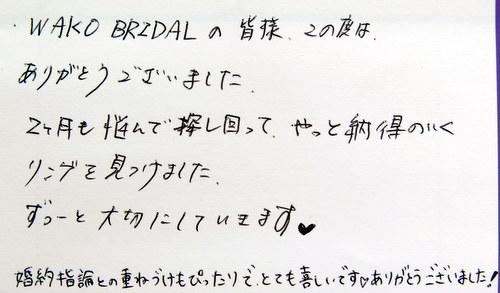 ・WAKO BRIDALの皆様、この度は、
ありがとうございました。
2ヶ月も悩んで探し回って、やっと納得のいく
リングを見つけました。
ずっーと大切にしていきます♥
婚約指論との重ねづけもぴったりで、とても喜しいです♡ありがとうございました!